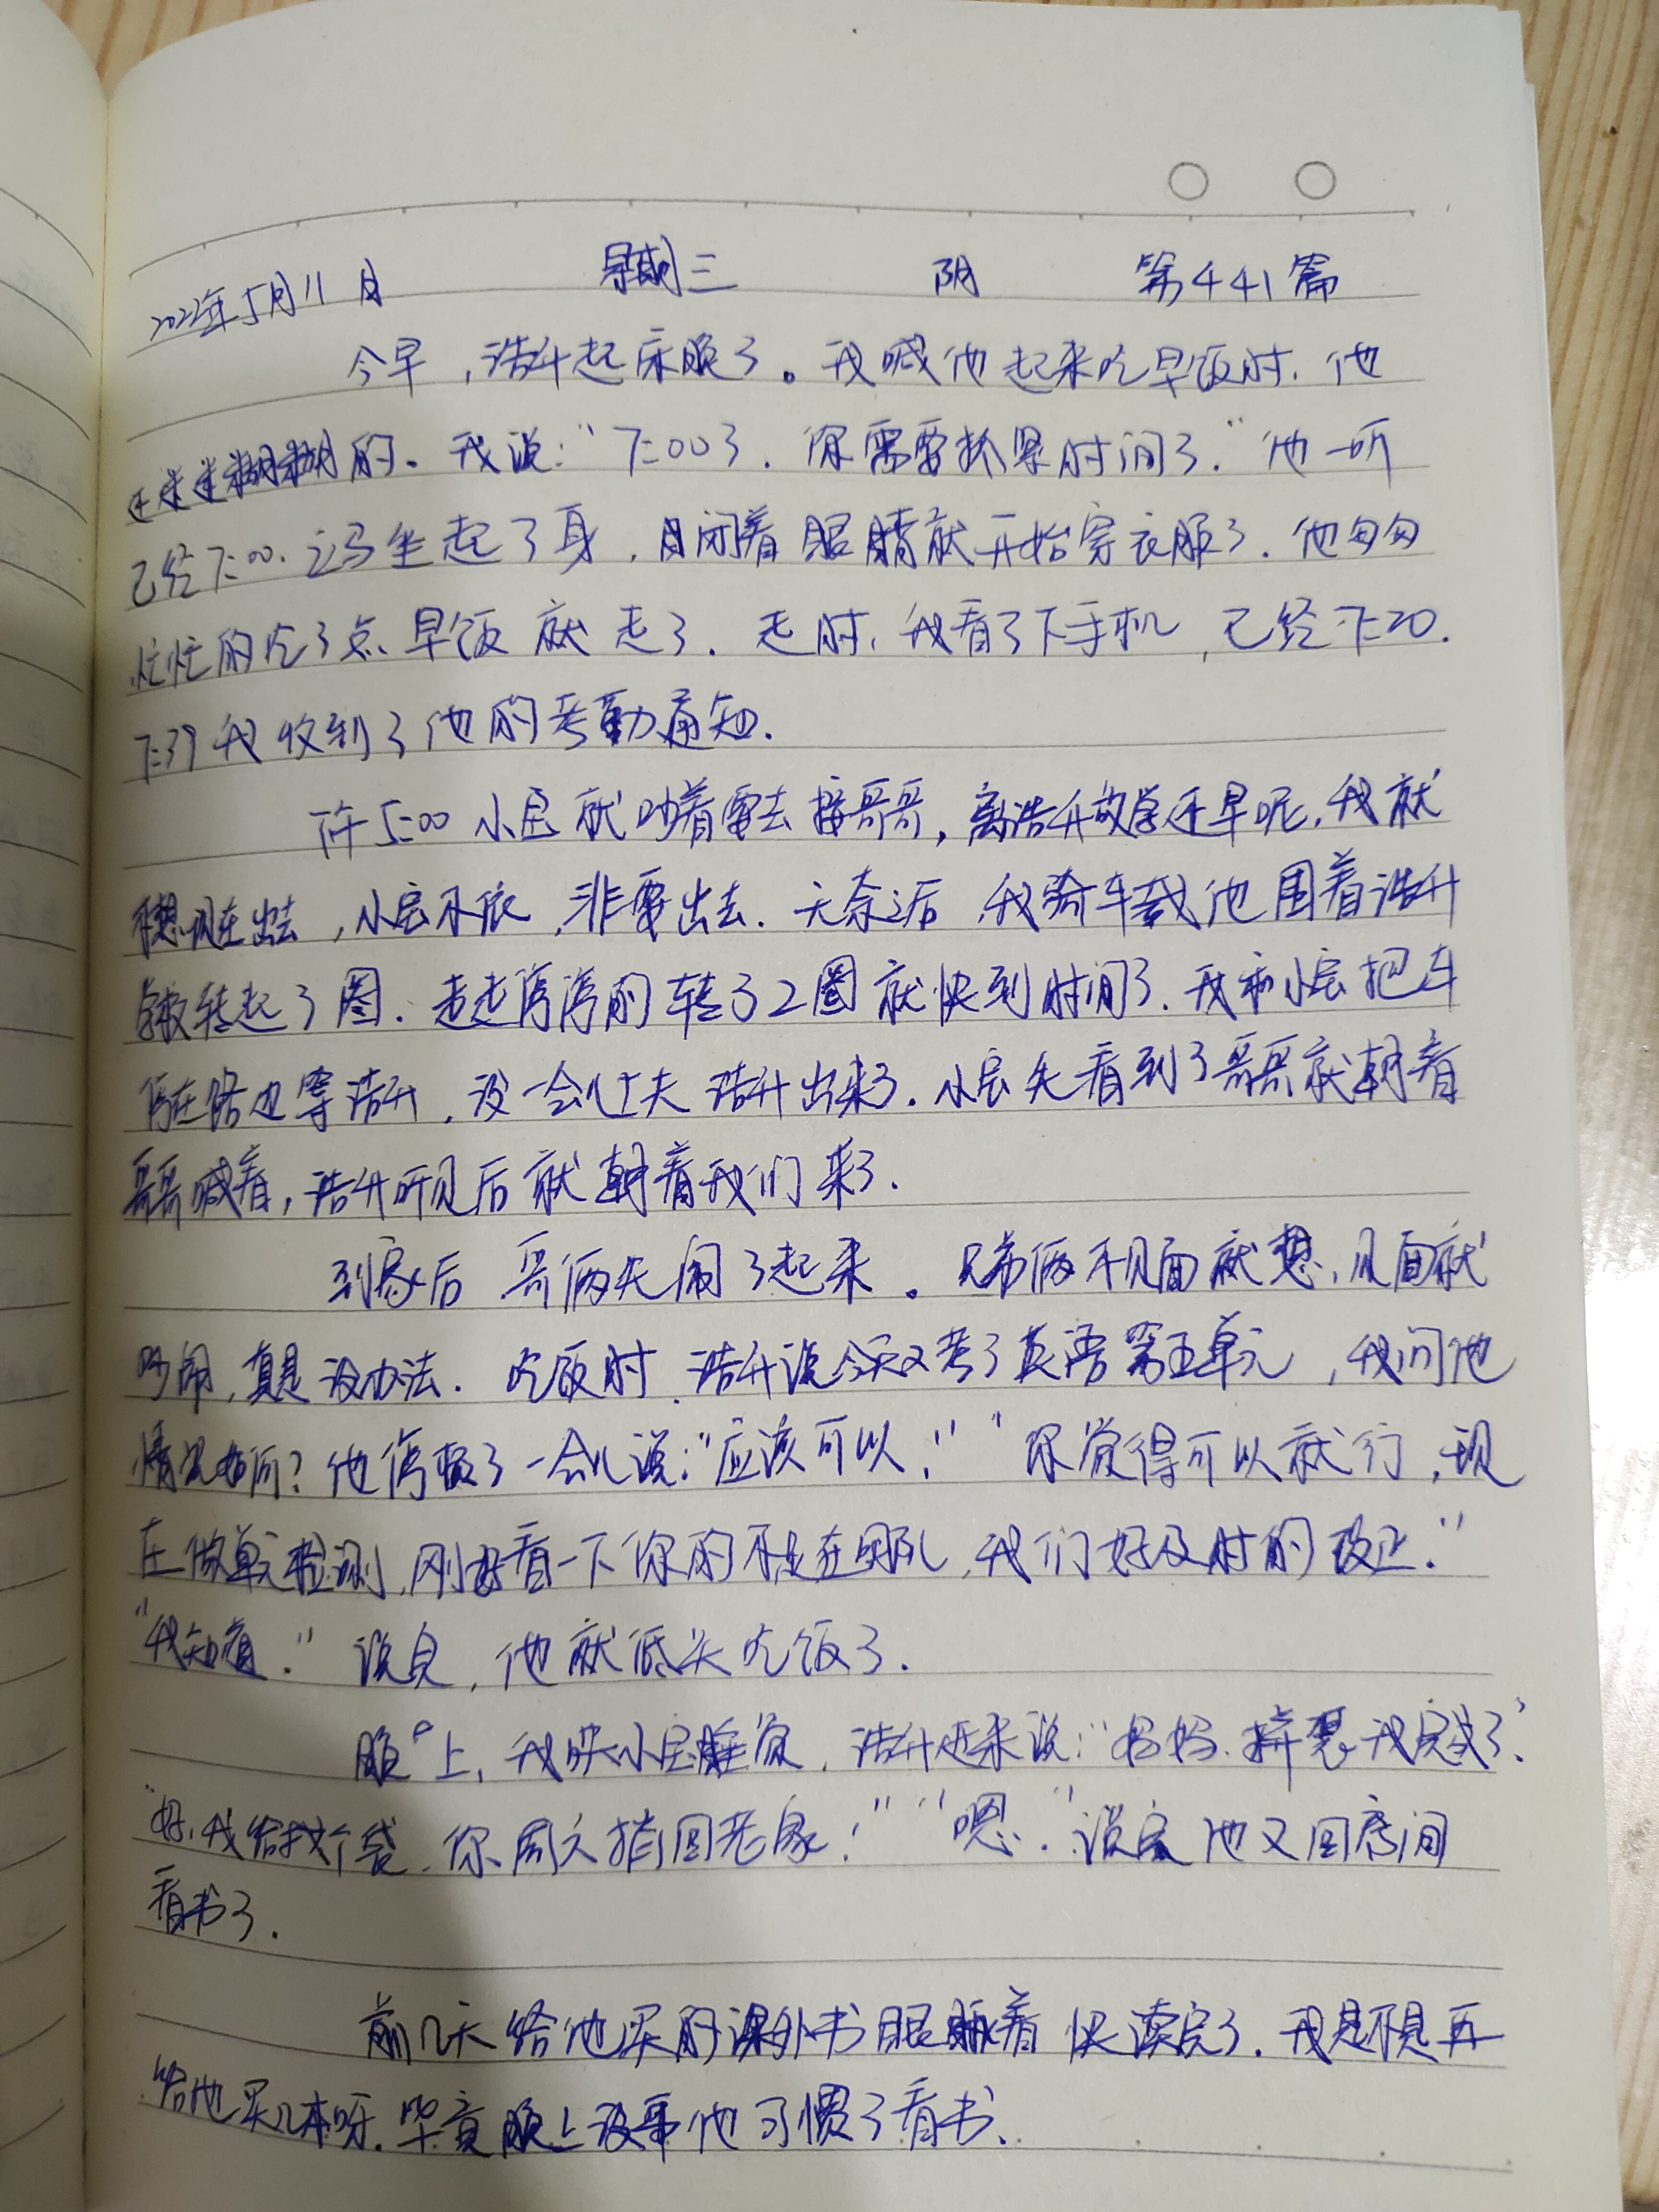 2022年5月11日 星期三 阴 第441篇
今早，浩升起床晚了。我喊他起来吃早饭时，他
迷迷糊糊的。我说：“7:00了，你需要抓紧时间了.”他一听
已经7:00.立马坐起了身，闭着眼睛就开始穿衣服了.他匆匆
忙忙的吃了点早饭就走了.走时,我看了下手机,已经7:20.
7:39我收到了他的考勤通知.
下午5:00小宝就吵着要去接哥哥，离浩升放学还早呢,我就
不想现在出去,小宝不依,非要出去.无奈之后,我骑车载他围着浩升
学校转起了圈.走走停停的转了2圈就快到时间了.我和小宝把车
停在路边等浩升,没一会儿工夫浩升出来了.小宝先看到了哥哥就朝着
哥哥喊着,浩升听见后就朝着我们来了.
到家后哥俩先闹了起来。兄弟俩不见面就想,见面就
吵闹,真是没办法.吃饭时,浩升说今天又考了英语第五单元,我问他
情况如何?他停顿了一会儿说:“应该可以!”“你觉得可以就行,现
在做单元检测,刚好看一下你的不足在哪儿,我们好及时的改正.”
“我知道.”说完,他就低头吃饭了.
晚上,我哄小宝睡觉,浩升进来说:“妈妈.我完成了.”
“好,我给找个袋,你周六捎回老家!”“嗯.”说完他又回房间
看书了.
前几天给他买的课外书眼瞅着快读完了.我是不是再
给他买几本呀.毕竟晚上没事他习惯了看书.